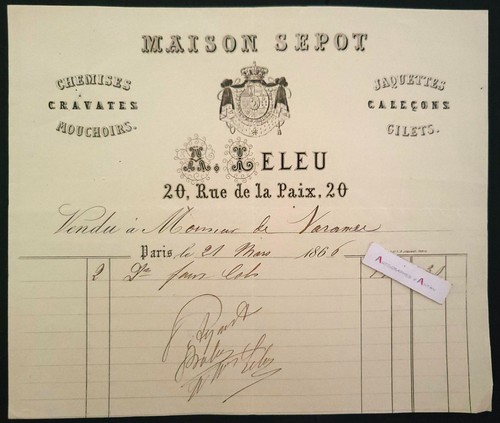 MAISON SEPOT
CHEMISES
CRAVATES
MOUCHOIRS.
JAQUETTES
CALEÇONS
GILETS.
A. LELEU
20, Rue de la Paix, 20
Vendu à Monsieur de
Paris, le 21 Mars 1866
2 Dne faux Cols